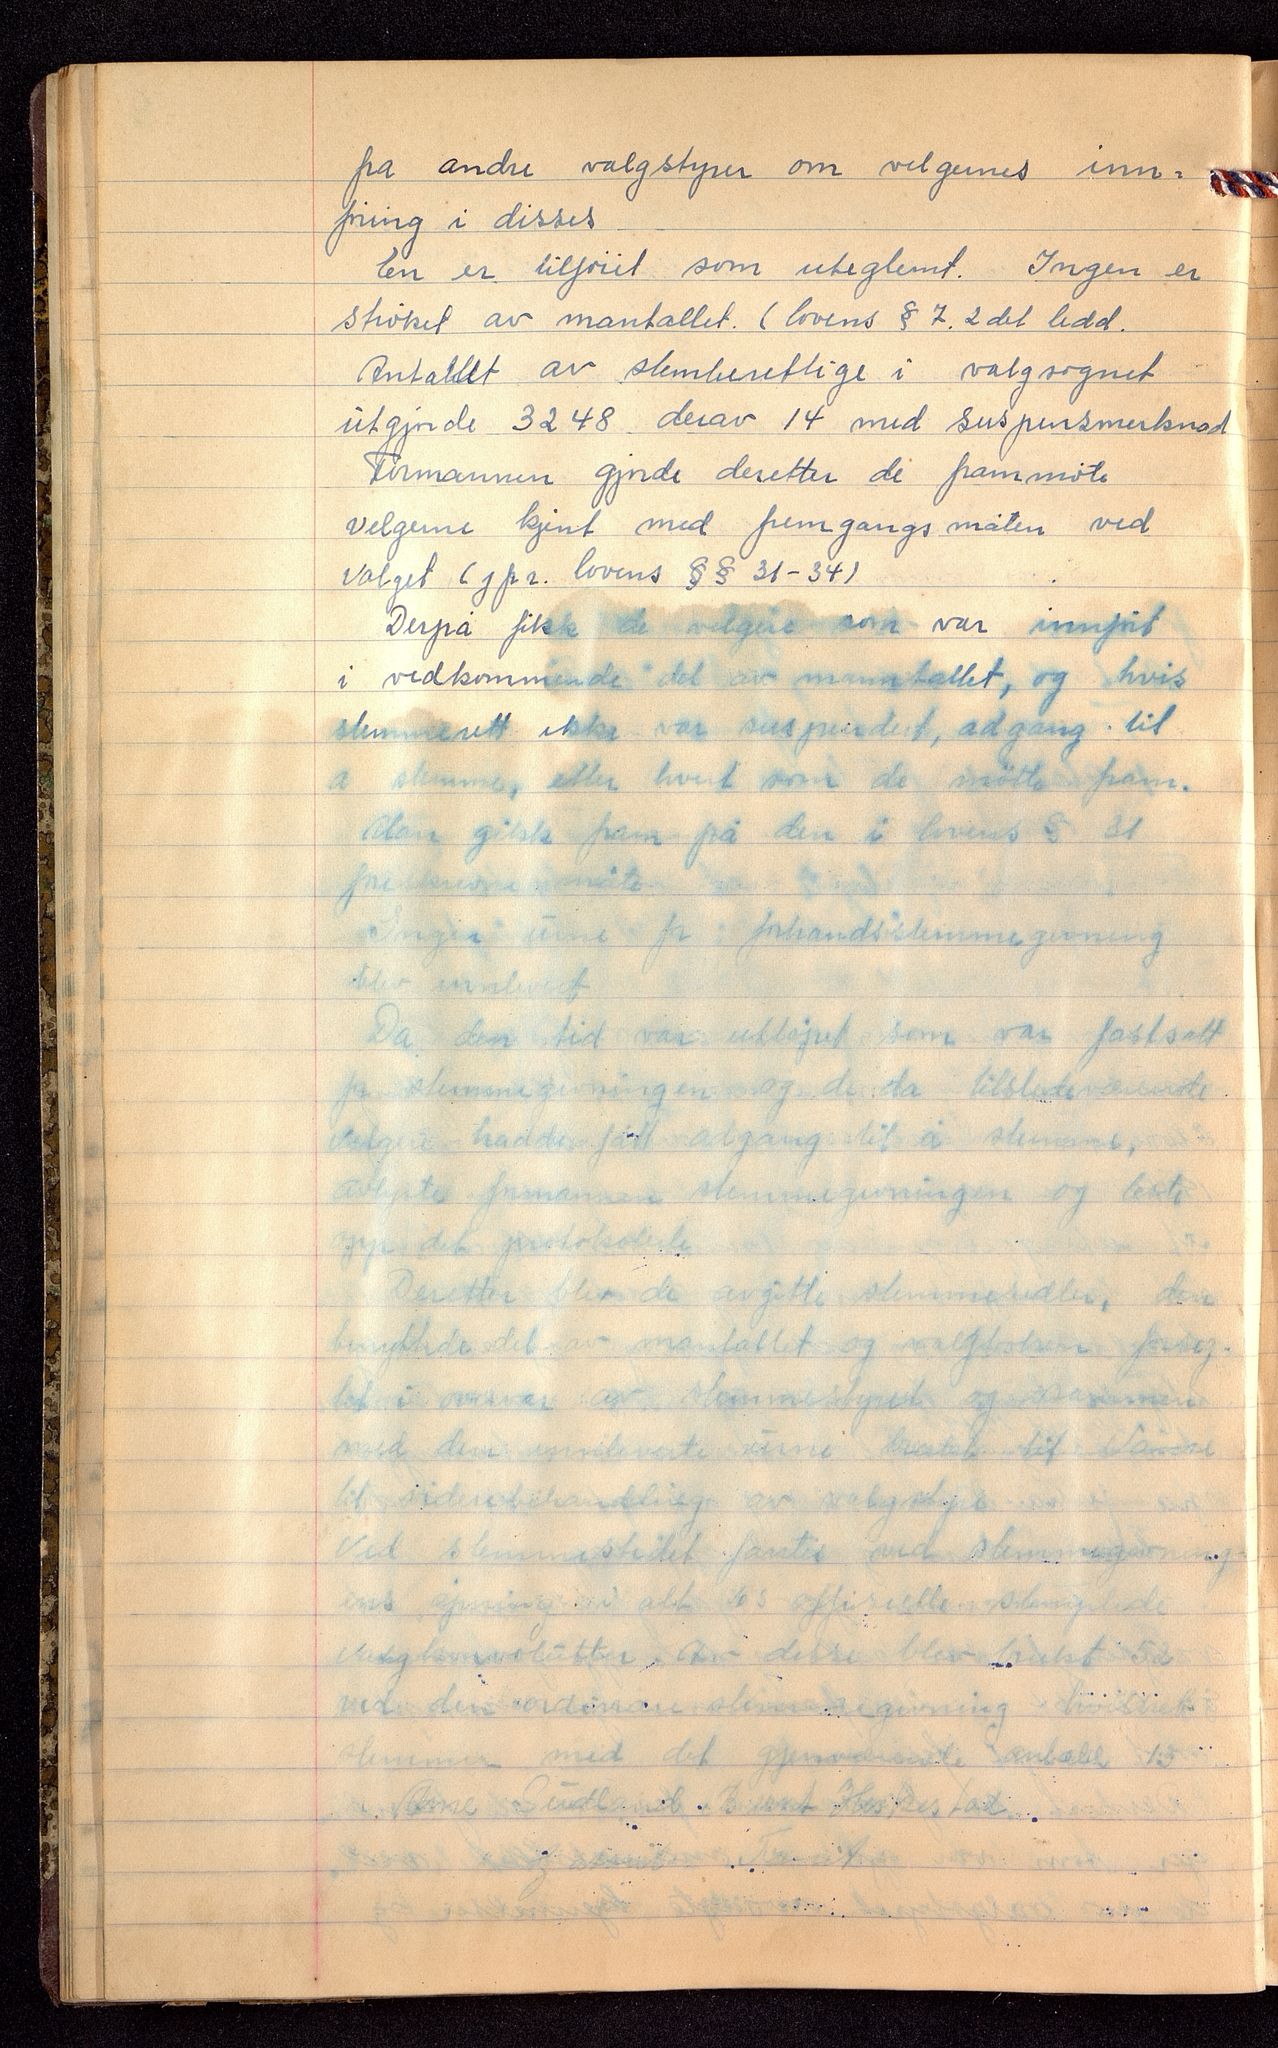 fra andre valgstyrer om velgernes inn-
föring i disses
En er tilföiet som uteglemt. Ingen er
ströket av mantallet. (lovens § 7. 2det ledd.
Antallet av stemberettige i valgsognet
utgjorde 3248 derav 14 med suspensmerknad
Formannen gjorde deretter de frammöte
velgerne kjent med fremgangsmåten ved
valget (jfr. lovens §§ 31-34)
Derpå fikk de velgere som var innfört
i vedkommende del av manntallet, og hvis
stemmerett ikke var suspendert, adgang til
å stemme, etter hvert som de mötte fram.
Man gikk fram på den i lovens § 31
foreskrevne måte
Ingen urne for forhåndsstemmegivning
blev innlevert
Da den tid var utlöpet som var fastsatt
for stemmegivningen og de da tilstedeværende
velgere hadde fått adgang til å stemme,
avlyste formannen stemmegivningen og leste
opp det protokolerte
Deretter blev de avgitte stemmesedler, den
benyttede del av mantallet og valgboken forseg-
let i overvær av stemmestyret og sammen
med den innleverte urne bragt til
til videre behandling av valgstyre
Ved stemmestedet fantes ved stemmegivning-
ens åpning i alt 65 offisielle stemplede
valgkonvolutter. Av disse blev brukt 52
ved den ordinære stemmegivning
stemmer med det gjenværende antall 13
Arne Bernt